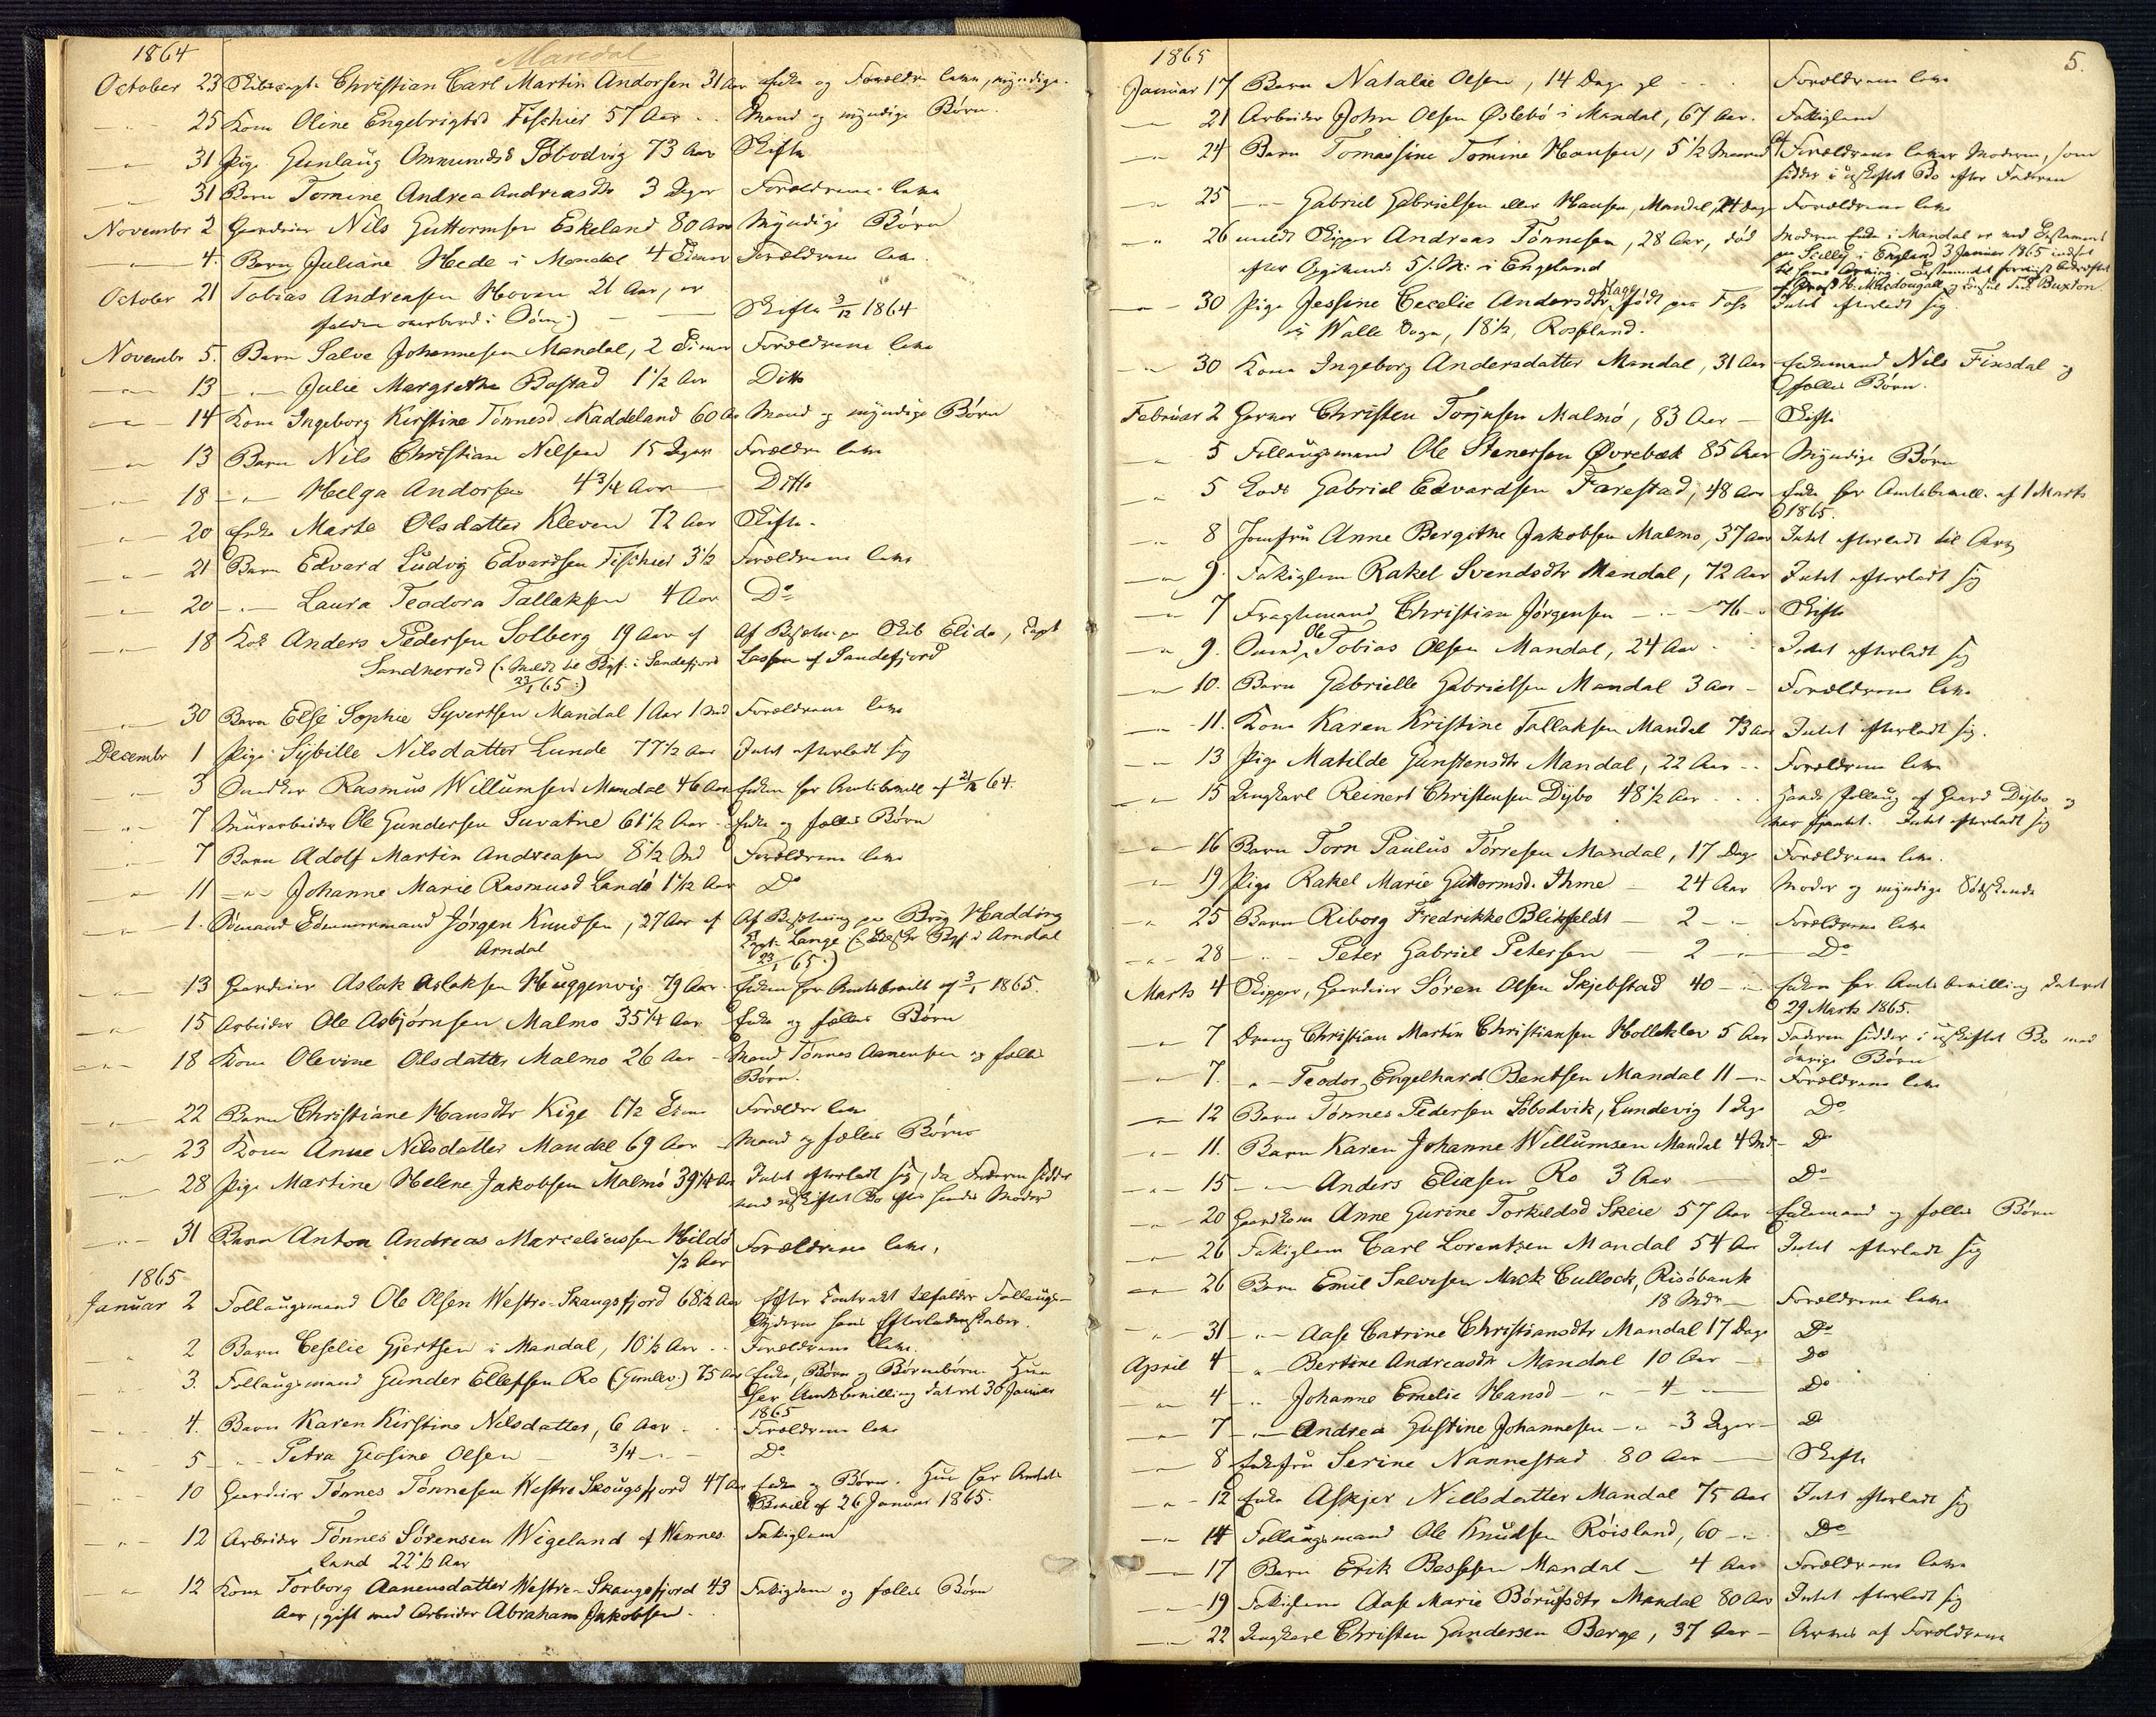 Mandal
1864
October 23 Christian Carl Martin Andorsen 31 Aar Enke og Forældre leve, myndige
25 Kone Oline Engebrigtsd Fischier 57 Aar Mand og myndige Børn
31 Pige Gunlaug Ommundsd Søbodvig 73 Aar Skifte
31 Barn Tomine Andrea Andreasdtr 3 Dager Forældrene leve
Novembr 2 Gaardmand Nils Guttormsen Eskeland 80 Aar Myndige Børn
4 Barn Juliane Hede i Mandal 4 Timer Forældrene leve
October 21 Tobias Andreasen Hoven 21 Aar, er
falden overbord i Søen :) Skifte 3/12 1864
Novembr 5. Barn Salve Johannesen Mandal, 2 Timer Forældrene leve
13 Julie Margrethe Bastad 1 1/2 Aar Ditto
14 Kone Ingeborg Kirstine Tønnesd Kaddeland 60 Aar Mand og myndige Børn
13 Barn Nils Christian Nilsen 15 Dager Forældre leve
18 Helga Andorsen 4 3/4 Aar Ditto
20 Enke Marte Olsdatter Kleven 72 Aar Skifte
21 Barn Edvard Ludvig Edvardsen Fischier 3 1/2 Forældrene leve
20 Laura Teodora Tallaksen 4 Aar Do
18 Kok Anders Pedersen Solberg 19 Aar af Af Besætn. paa Skib Elida, Capt
Sandherred (: Meldt til Skf. i Sandefjord Lassen af Sandefjord
23/1 65 :)
30 Barn Else Sophie Syvertsen Mandal 1 Aar 1 Md Forældrene leve
Decembr 1 Pige Sybille Nilsdatter Lunde 77 1/2 Aar Intet efterladt sig
3 Snedker Rasmus Willumsen Mandal 46 Aar Enken har Amtsbevill af 21/12 64.
7 Murarbeider Ole Gundersen Suvatne 61 1/2 Aar Enke og fælles Børn
7 Barn Adolf Martin Andreasen 8 1/2 Md Forældrene leve
11 Johanne Marie Rasmusd Landø 1 1/2 Aar Do
1. Sømand Tømmermand Jørgen Knudsen, 27 Aar af Af Besætning paa Brig Haddong
Arndal Capt. Lange (: Skf. i Arndal
23/1 65 :)
13 Gaardmand Aslak Aslaksen Huggenvig 79 Aar Enken har Amtsbevill af 3/1 1865.
15 Arbeider Ole Asbjørnsen Malmo 35 1/4 Aar Enke og fælles Børn
18 Kone Olevine Olsdatter Malmo 26 Aar Mand Tønnes Aanensen og fælles
Børn.
22 Barn Christiane Hansdtr Kige 1 1/2 Time Forældre leve
23 Kone Anne Nilsdatter Mandal 69 Aar Mand og fælles Børn
28 Pige Martine Helene Jakobsen Malmø 39 1/4 Aar Intet efterladt sig, da Faderen sidder
med uskiftet Bo efter hendes Moder
31 Barn Anton Andreas Marceliussen Hildø Forældrene leve,
1/2 Aar
1865
Januar 2 Follaugsmand Ole Olsen Westre-Skaugsfjord 68 1/2 Aar Efter Contrakt tilfalder Follaugs-
yderen hans Efterladenskaber.
2 Barn Ceselie Gjertsen i Mandal, 10 1/2 Aar Forældrene leve.
3. Follaugsmand Gunder Ellefsen Ro (Gimlev.) 75 Aar Enke, Børn og Børnebørn. Hun
har Amtsbevilling dateret 30 Januar
1865
4. Barn Karen Kirstine Nilsdatter, 6 Aar Forældrene leve
5 Petra Gosine Olsen 3/4 Do
10 Gaardmand Tønnes Tønnesen Westre Skougsfjord 47 Aar Enke og Børn. Hun har Amts
Bevill af 26 Januar 1865.
12 Arbeider Tønnes Sørensen Wigeland af Wennes- Fattiglem
land 22 1/2 Aar
12 Kone Torborg Aanensdatter Westre-Skaugsfjord 43 Fattiglem og fælles Børn
Aar, gift med Arbeider Abraham Jakobsen.
5.
1865
Januar 17 Barn Natalie Olsen, 14 Dage gl Forældrene leve
21 Arbeider John Olsen Øslebø i Mandal, 67 Aar. Fattiglem
24 Barn Tomassine Tomine Hansen, 5 1/2 Maaned Af Forældrene lever Moderen, som
sidder i uskiftet Bo efter Faderen
25 Gabriel Gabrielsen eller Hansen, Mandal, 24 Dage Forældrene leve
26 meldt Skipper Andreas Tønnesen, 28 Aar, død Moderen Enke i Mandal er ved Testament
efter Opgivende 5/1 i Engeland paa Scilly i England 3 Januar 1865 indsat
til hans Arving. Testamentet forevist bekræftet
af H. Macdougall og Consul Buxton
30 Pige Jessine Cecelie Andersdtr Hage, født paa Foss Intet efterladt sig
i Walle Sogn, 18 1/2, Rossland.
30 Kone Ingeborg Andersdatter Mandal, 31 Aar Enkemand Nils Finsdal og
fælles Børn.
Februar 2 Garver Christen Torjusen Malmø, 83 Aar Skifte
5 Follaugsmand Ole Stenersen Øvrebæk 85 Aar Myndige Børn
5 Lods Gabriel Edvardsen Farestad, 48 Aar Enke har Amtsbevill. af 1 Marts
1865.
8 Jomfru Anne Bergithe Jakobsen Malmo, 37 Aar Intet efterladt til Arv
9. Fattiglem Rakel Svendsdtr Mandal, 72 Aar Intet efterladt sig
7 Fragtemand Christian Jørgensen 76 Skifte
9. Ole Tobias Olsen Mandal, 24 Aar Intet efterladt sig
10. Barn Gabrielle Gabrielsen Mandal 3 Aar Forældrene leve
11. Kone Karen Kristine Tallaksen Mandal 73 Aar Intet efterladt sig.
13 Pige Matilde Gunstensdtr Mandal, 22 Aar Forældrene leve
15 Ungkarl Reinert Christensen Dybo 48 1/2 Aar Havde Follaug af Gaard Dybo, og
har Intet efterladt sig
16 Barn Torn Paulus Tørresen Mandal, 17 Dage Forældrene leve.
19 Pige Rakel Marie Guttormsd. Ihme 24 Aar Moder og myndige Sødskende
25 Barn Riborg Fredrikke Blikfeldt 2 Forældrene leve
28 Peter Gabriel Petersen 2 Do
Marts 4 Skipper, Gaardmand Søren Olsen Skjebstad 40 Enken har Amtsbevilling dateret
29 Marts 1865.
7 Dreng Christian Martin Christiansen Holleklev 5 Aar Faderen sidder i uskiftet Bo med
øvrige Børn
7. Teodor Engelhard Bentsen Mandal 11 Forældrene leve
12 Barn Tønnes Pedersen Søbodvik, Lundevig 1 Dg Do
11. Barn Karen Johanne Willumsen Mandal 4 Md Do
15 Anders Eliasen Ro 3 Aar Do
20 Gaardkone Anne Gurine Torkildsd Skeie 57 Aar Enkemand og fælles Børn
26 Fattiglem Carl Lorentzen Mandal 54 Aar Intet efterladt sig
26 Barn Emil Salvesen Mack Cullock, Risøbank
18 Mdr Forældrene leve
31 Aase Catrine Christiansdtr Mandal 17 Dage Do
April 4 Bertine Andreasdtr Mandal 10 Aar Do
4 Johanne Emelie Hansd 4 Do
7 Andrea Gustine Johannesen 3 Dager Do
8 Enkefru Serine Nannestad 80 Aar Skifte
12 Enke Askjer Nillsdatter Mandal 75 Aar Intet efterladt sig
14 Follaugsmand Ole Knudsen Røisland, 60 Do
17 Barn Erik Bessesen Mandal 4 Aar Forældrene leve
19 Fattiglem Aase Marie Børufsdtr Mandal 80 Aar Intet efterladt sig
22 Ungkarl Christen Gundersen Berge, 37 Aar Arves af Forældrene